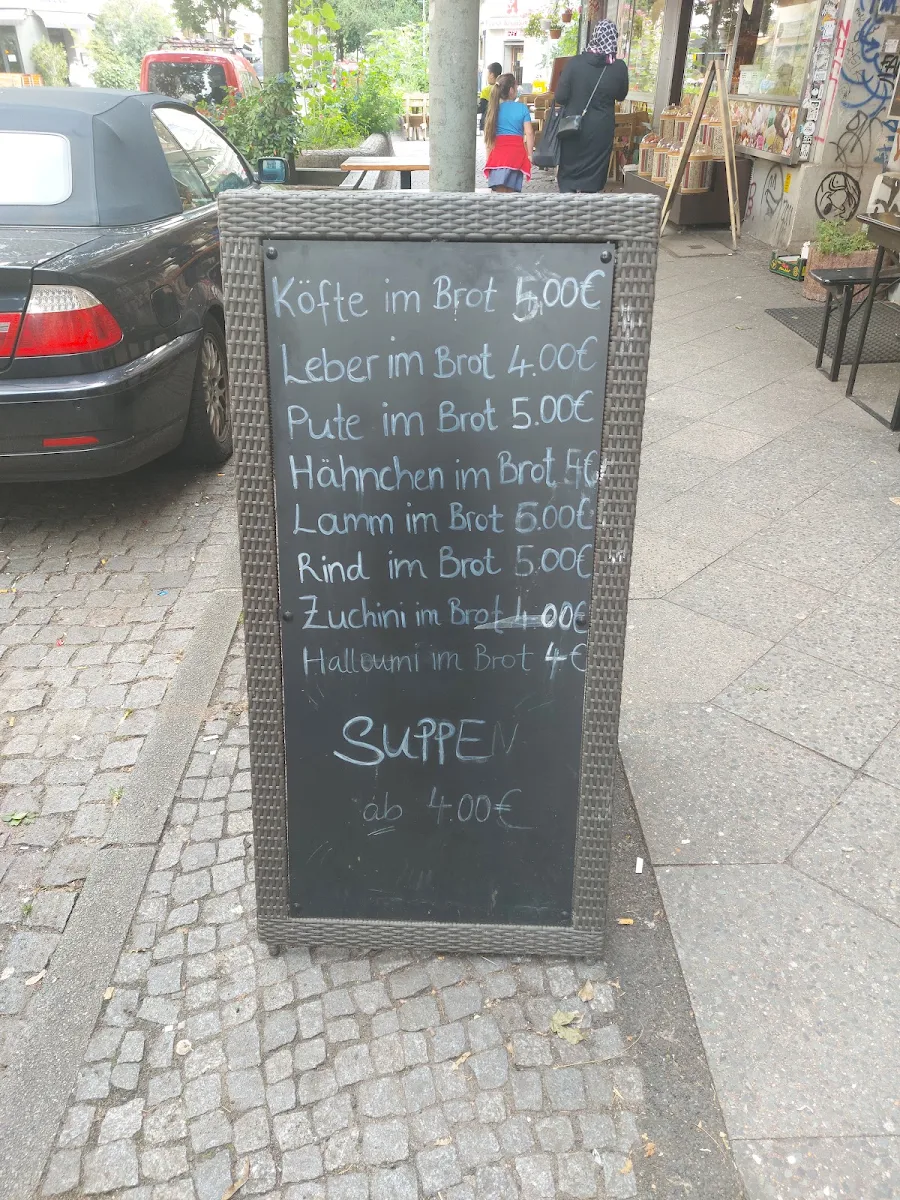 Köfte im Brot 5.00€
Leber im Brot 4.00€
Pute im Brot 5.00€
Hähnchen im Brot €
Lamm im Brot 6.00€
Rind im Brot 5.00€
Zuchini im Brot 4.00€
Halloumi im Brot 4€
SUPPEN
ab 4.00€